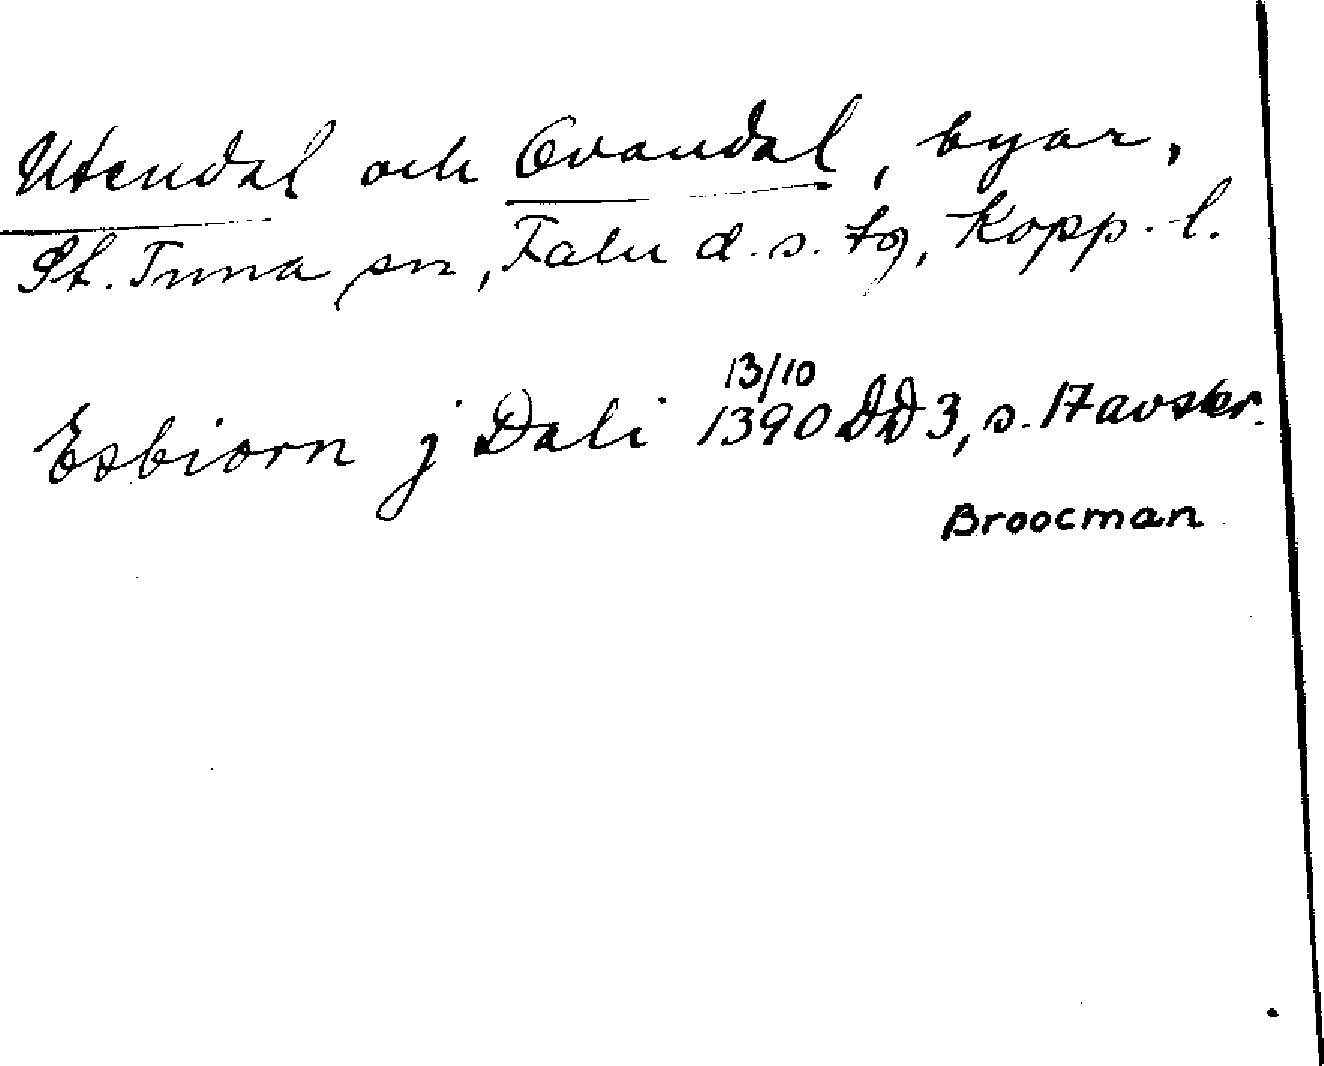 Utendal och Ovandal, byar,
St. Tuna sn, Falu d.s. tg, Kopp. l.
13/10
Esbiorn j Dali 1390 DD 3, s. 17 avskr.
Broocman